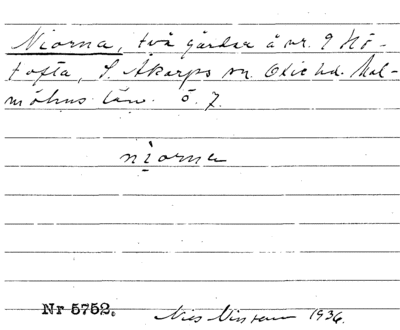 Niorna, två gårdar å nr. 9 Hö-
tofta, S. Åkarps sn. Oxie hd. Mal-
möhus län. ö. 7.
niorna
Nr 5752.
Nils 1936.